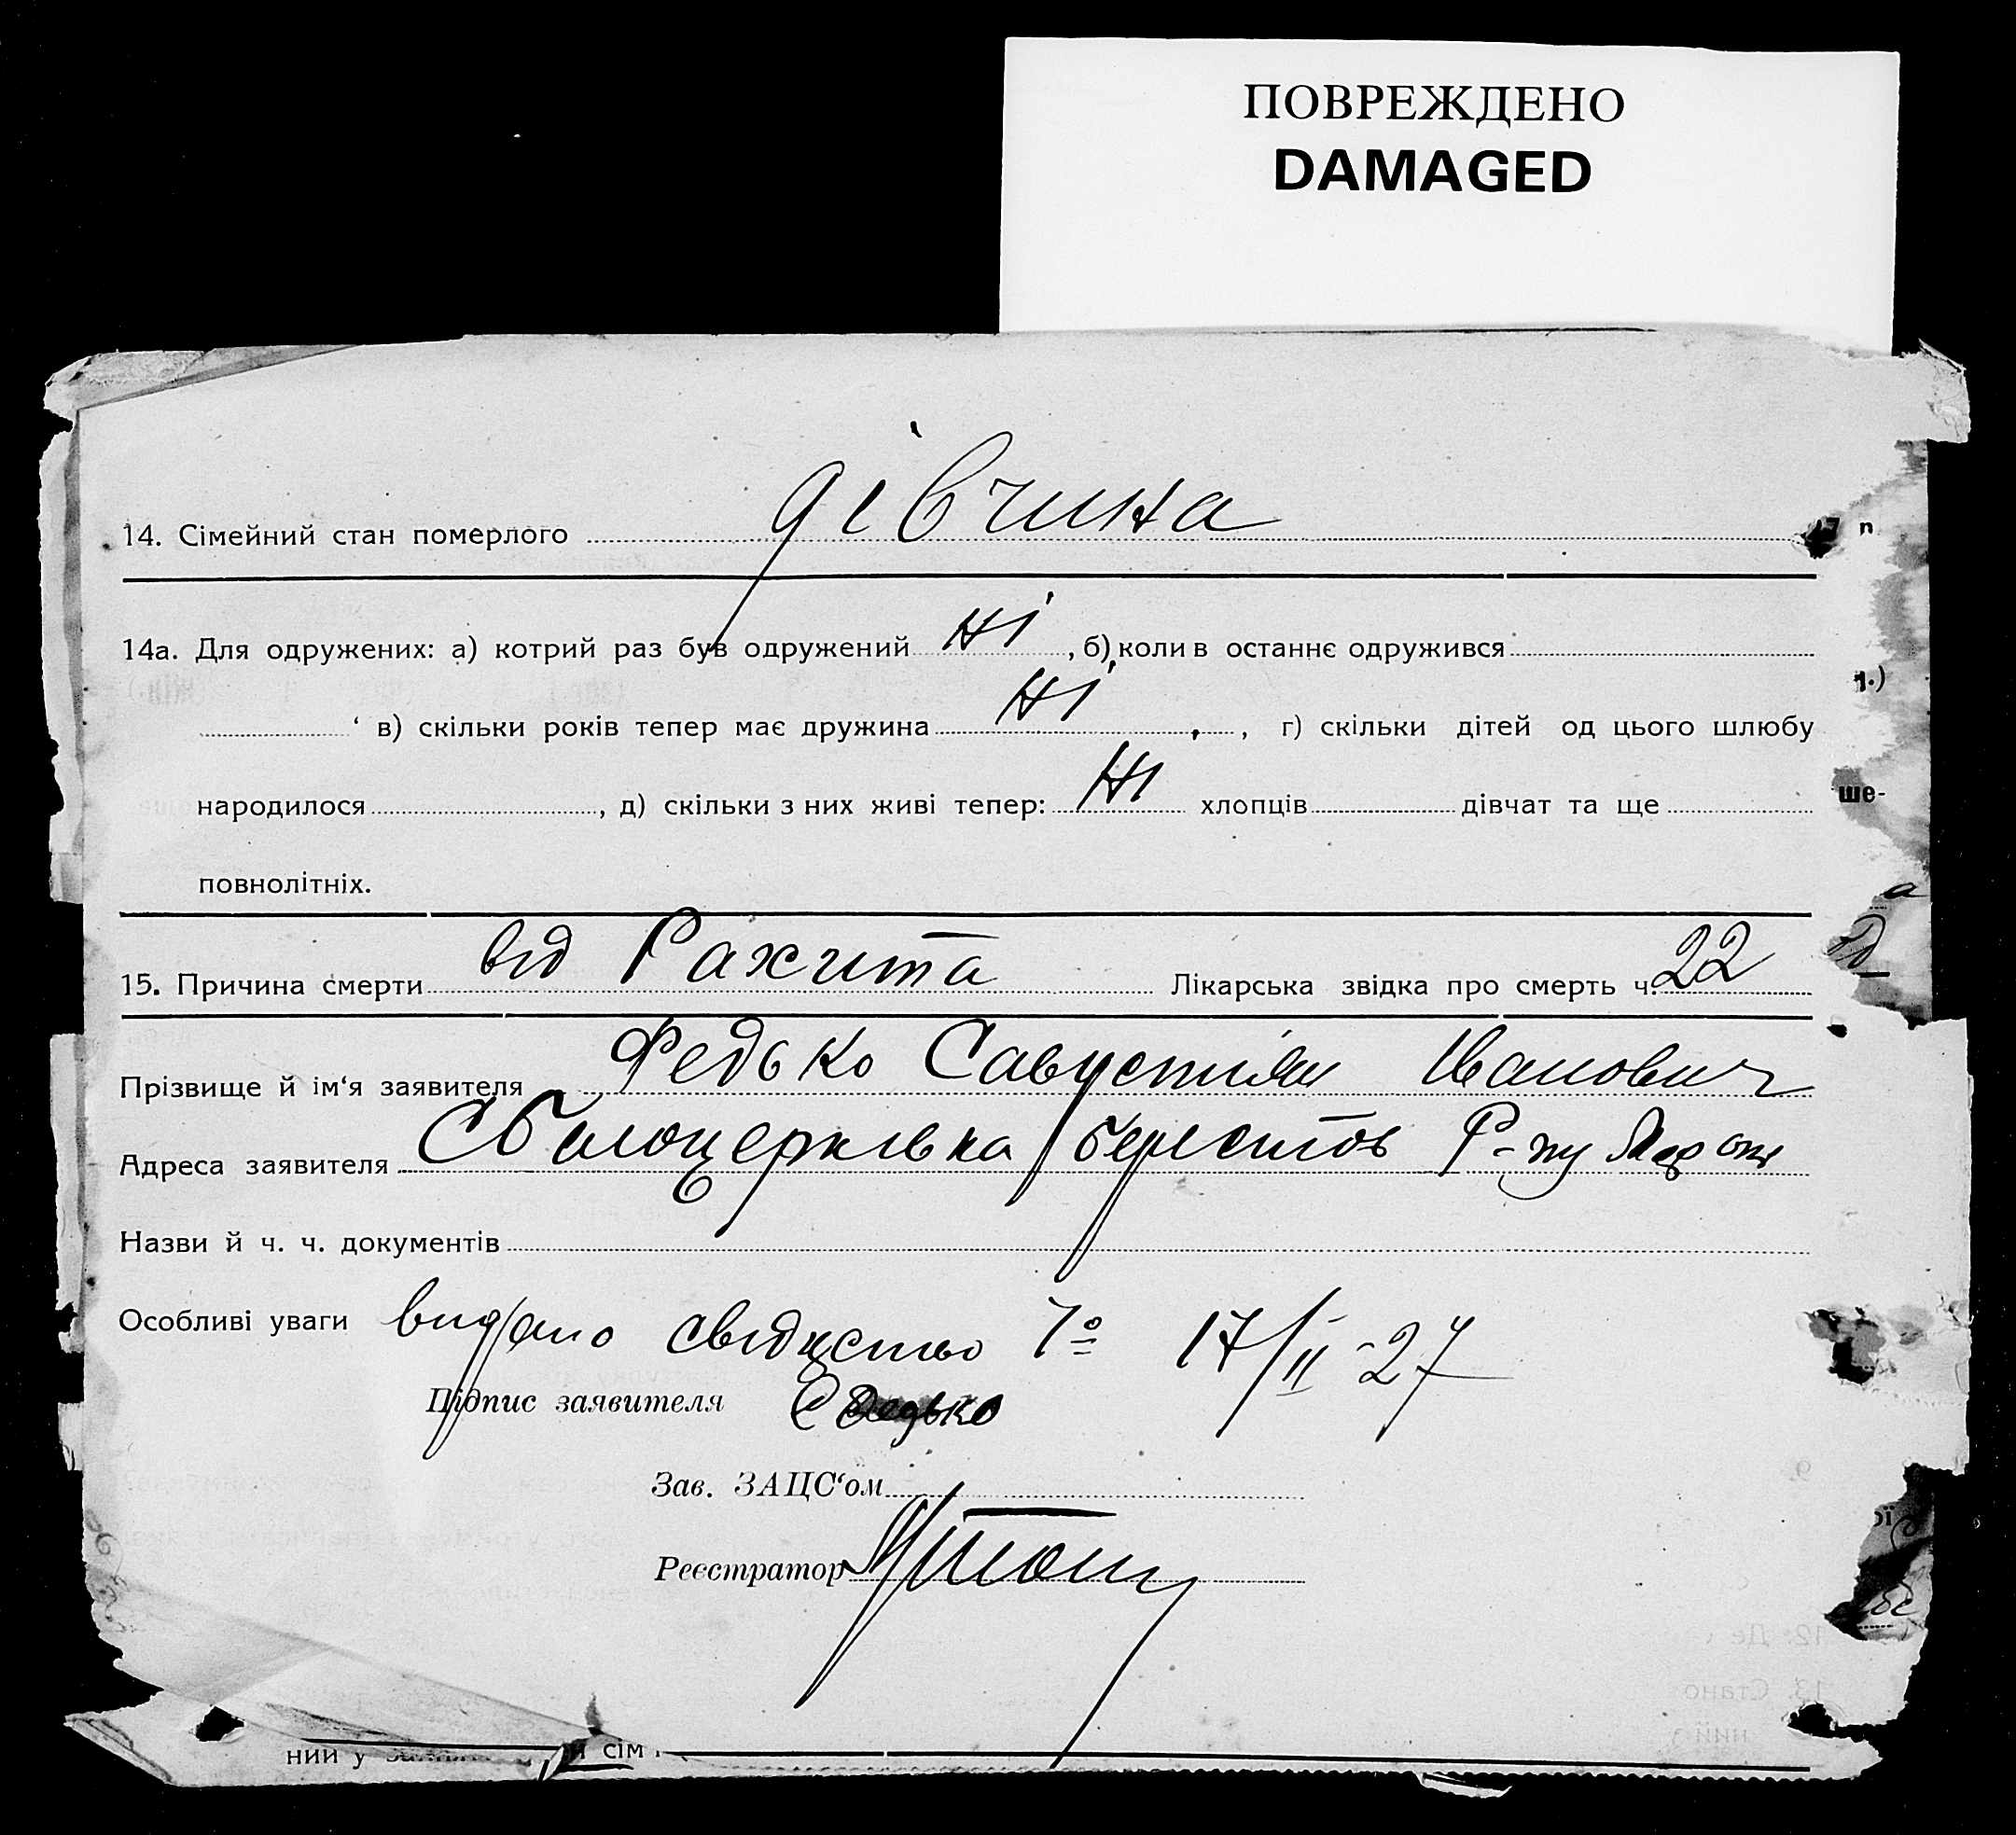 ПОВРЕЖДЕНО
DAMAGED
14. Сімейний стан померлого дівчина
14а. Для одружених: а) котрий раз був одружений ні, б) коли в останнє одружився
в) скільки років тепер має дружина ні, г) скільки дітей од цього шлюбу
народилося, д) скільки з них живі тепер: ні хлопців дівчат та ще
повнолітніх.
15. Причина смерти від Рахита Лікарська звідка про смерть ч. 22
Прізвище й ім‘я заявителя Федько Савустіян Іванович
Адреса заявителя С Білоцерківка Берестов Р-ну
Назви й ч. ч. документів
Особливі уваги видано свідуство 7º 17/II-27
Підпис заявителя С Федько
Зав. ЗАЦС‘ом
Реєстратор
ний у сім